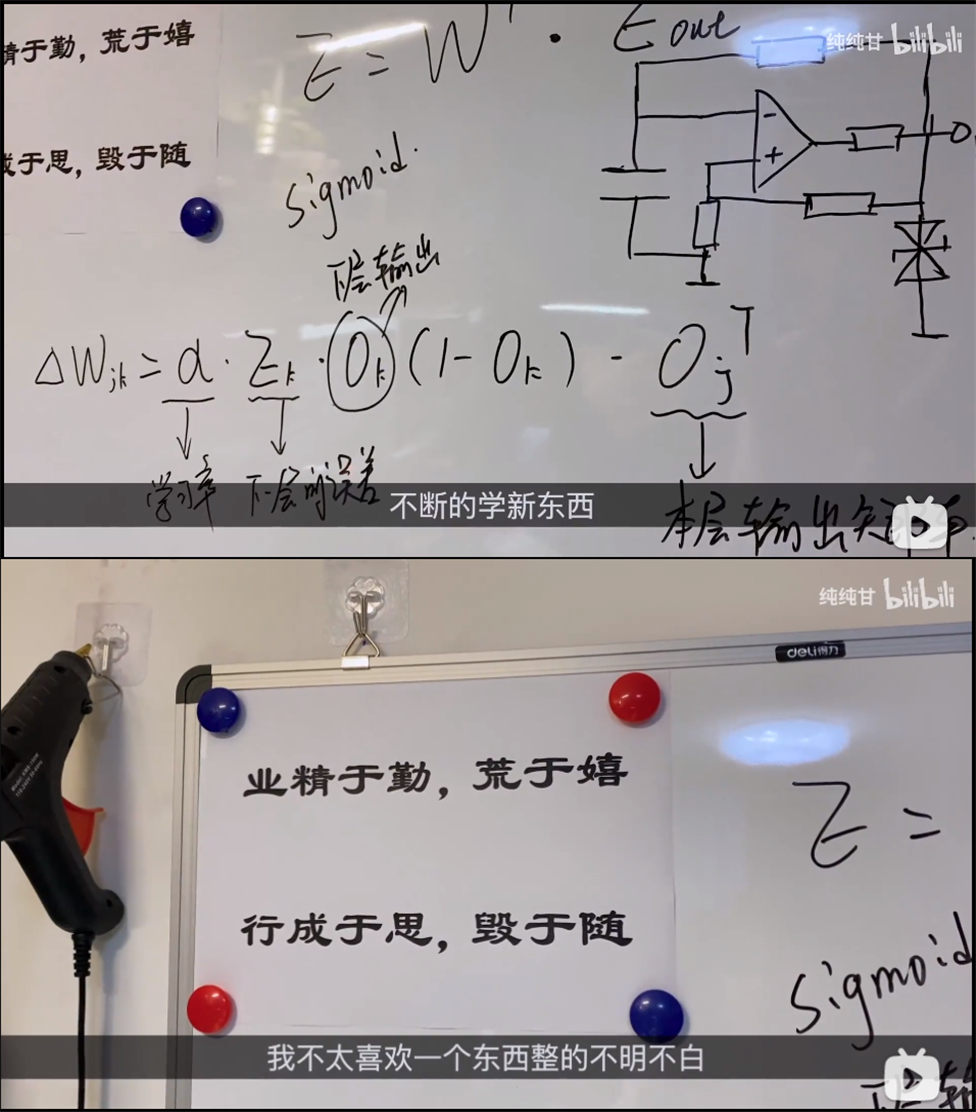 精于勤，荒于嬉
成于思，毁于随
E = W^T · E out
纯纯甘 bilibili
sigmoid.
- +
下层输出
ΔW_jk = α · E_k · O_k (1 - O_k) - O_j^T
学习率 下一层的误差
本层输出矩阵
不断的学新东西
纯纯甘 bilibili
deli得力
业精于勤，荒于嬉
行成于思，毁于随
E =
sigmoid
下层输
我不太喜欢一个东西整的不明不白